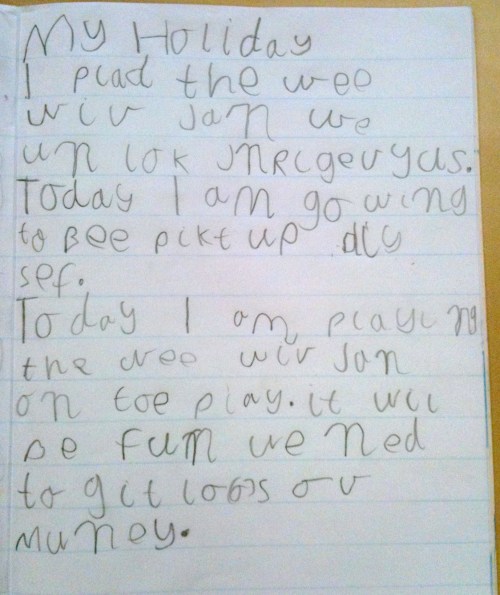 My Holiday
I plad the wee
wiv Jan we
un lok
Today I am gowing
to Bee pikt up
sef.
Today I am playing
the wee wiv Jan
on toe play. it wil
Be fum we Ned
to git loos ov
muney.